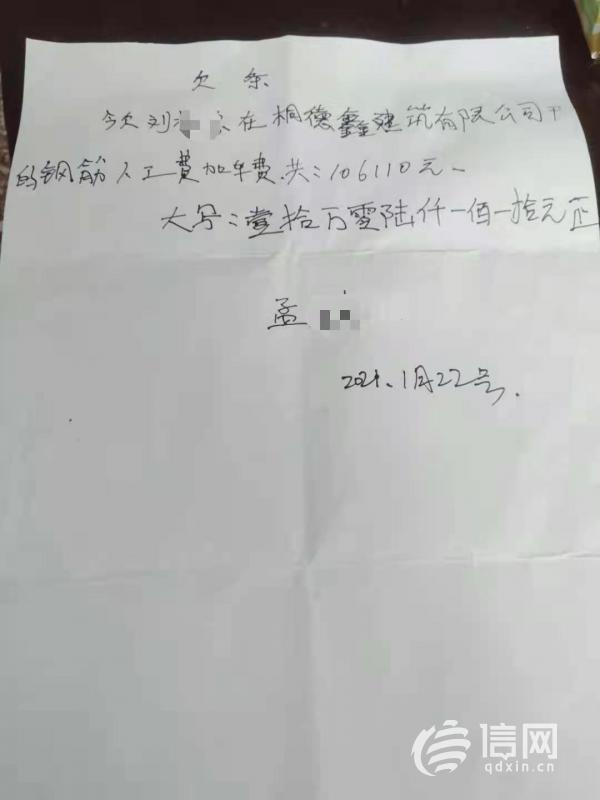 欠条
今欠刘在桐德鑫建筑有限公司干
的钢筋人工費加车费.共:106110元.
大写:壹拾万零陆仟一佰一拾元正
孟
2021.1月22号.
信网
qdxin.cn